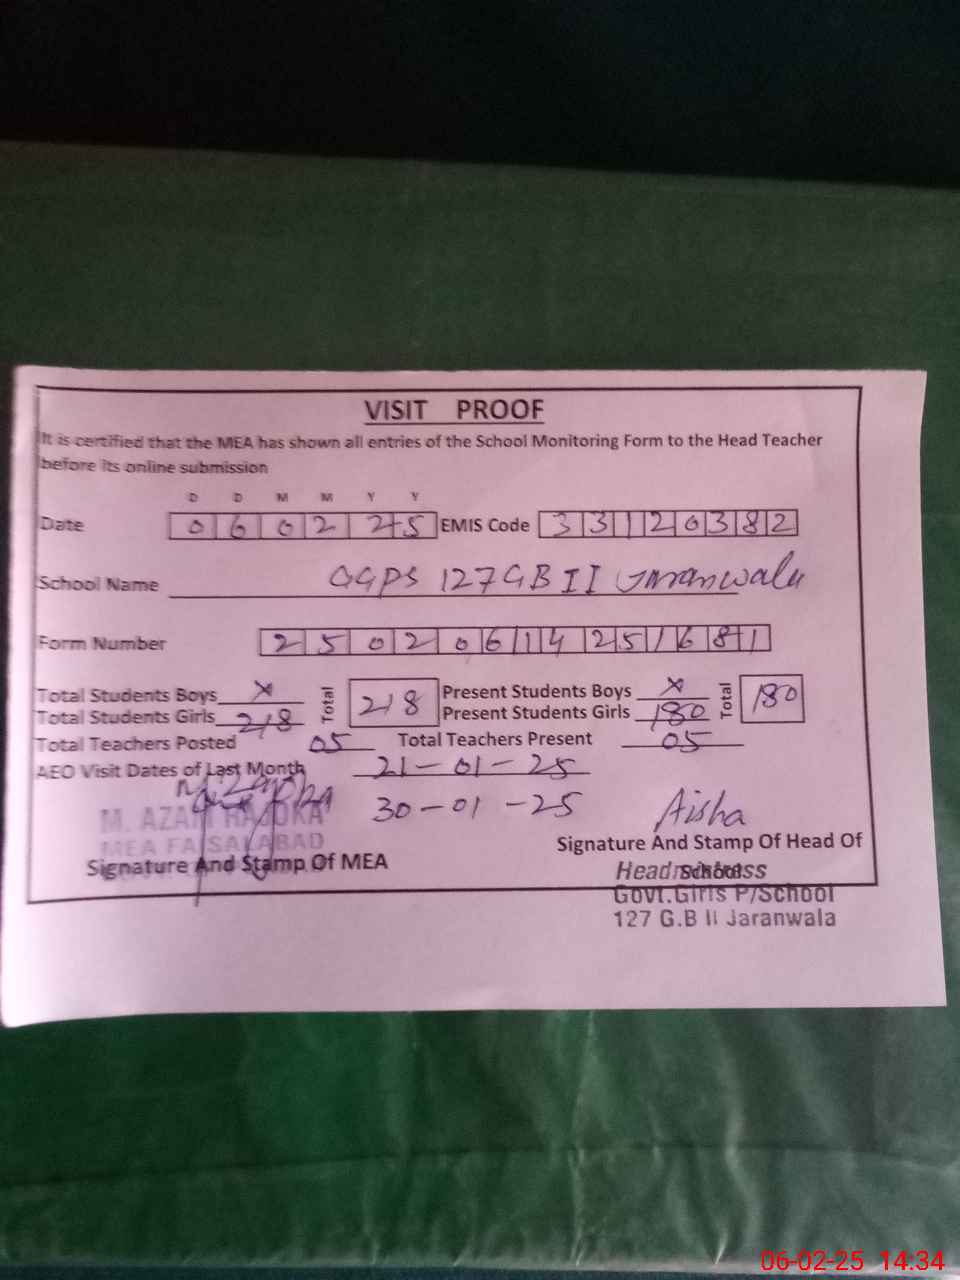 VISIT PROOF
It is certified that the MEA has shown all entries of the School Monitoring Form to the Head Teacher
before its online submission
D D M M Y Y
Date 0 6 0 2 2 5 EMIS Code 3 3 1 2 0 3 8 2
School Name GGPS 127 GB II Jaranwala
Form Number 2 5 0 2 0 6 1 4 2 5 1 6 8 1
Total Students Boys x Total 218 Present Students Boys x Total 180
Total Students Girls 218 Present Students Girls 180
Total Teachers Posted 05 Total Teachers Present 05
AEO Visit Dates of Last Month 21-01-25
30-01-25 Aisha
M. AZAM RAJOKA
MEA FAISALABAD
Signature And Stamp Of MEA
Signature And Stamp Of Head Of
School
Headmistress
Govt.Girls P/School
127 G.B II Jaranwala
06-02-25 14:34